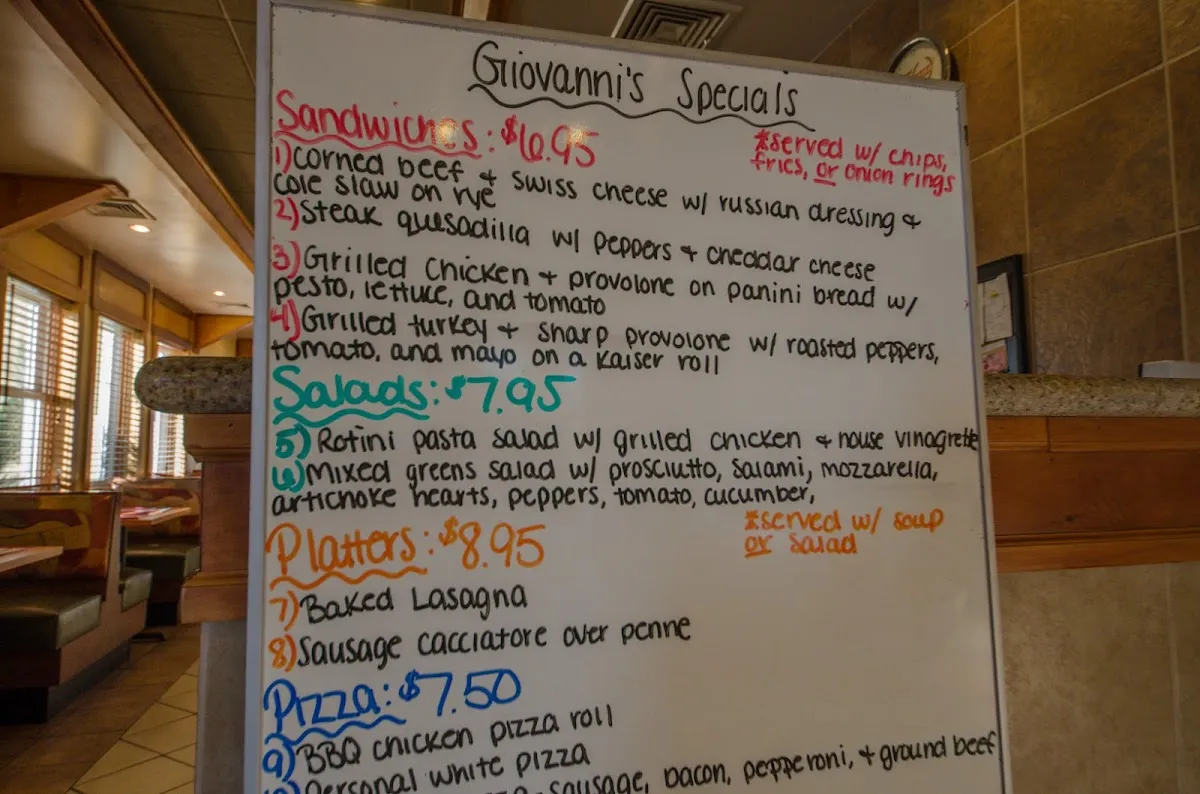 Giovanni's Specials
Sandwiches: $6.95
*served w/ chips,
fries, or onion rings
1) corned beef + swiss cheese w/ russian dressing +
cole slaw on rye
2) steak quesadilla w/ peppers + cheddar cheese
3) Grilled chicken + provolone on panini bread w/
pesto, lettuce, and tomato
4) Grilled turkey + sharp provolone w/ roasted peppers,
tomato, and mayo on a kaiser roll
Salads: $7.95
5) Rotini pasta salad w/ grilled chicken + house vinagrette
6) Mixed greens salad w/ prosciutto, salami, mozzarella,
artichoke hearts, peppers, tomato, cucumber,
Platters: $8.95
*served w/ soup
or salad
7) Baked Lasagna
8) Sausage cacciatore over penne
Pizza: $7.50
9) BBQ chicken pizza roll
Personal white pizza
sausage, bacon, pepperoni, + ground beef